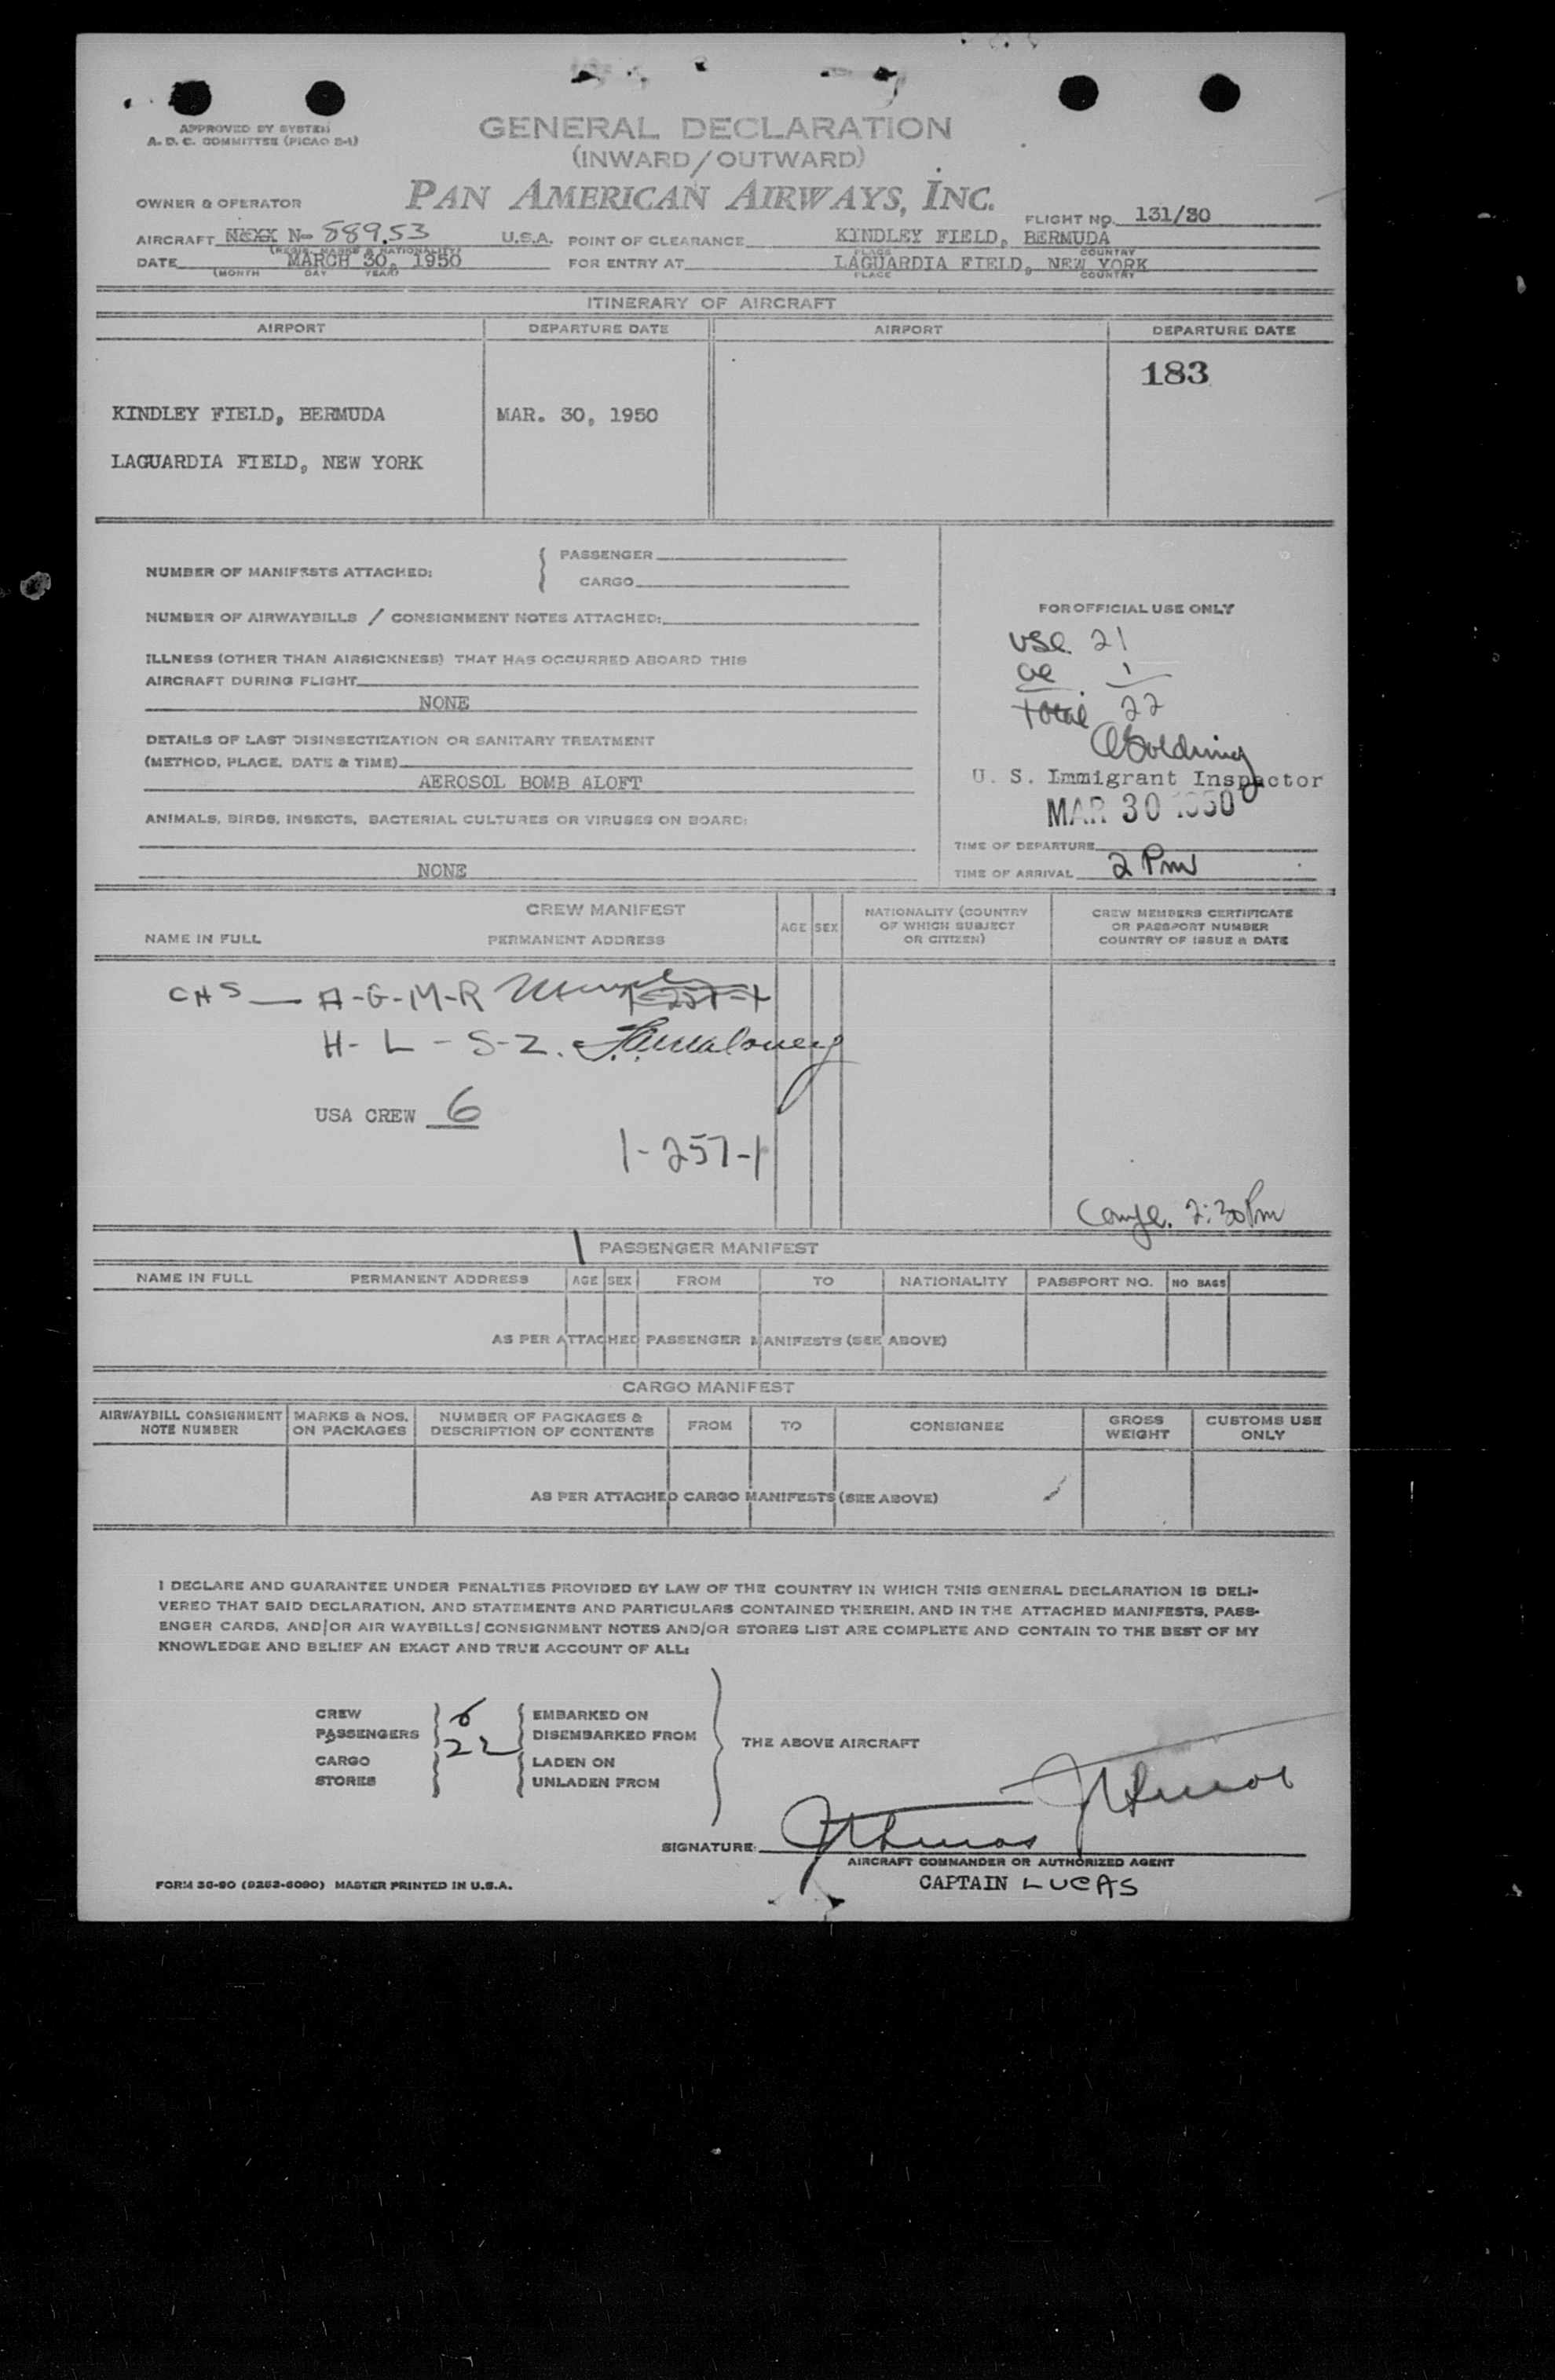 APPROVED BY SYSTEM
A. D. C. COMMITTEE (PICAO S-1)
GENERAL DECLARATION
(INWARD/OUTWARD)
OWNER & OPERATOR PAN AMERICAN AIRWAYS, INC.
FLIGHT NO. 131/30
AIRCRAFT N- 88953 U.S.A. POINT OF CLEARANCE KINDLEY FIELD, BERMUDA
(REGIS. MARKS & NATIONALITY) PLACE COUNTRY
DATE MARCH 30, 1950 FOR ENTRY AT LAGUARDIA FIELD, NEW YORK
(MONTH DAY YEAR) PLACE COUNTRY
ITINERARY OF AIRCRAFT
AIRPORT DEPARTURE DATE AIRPORT DEPARTURE DATE
183
KINDLEY FIELD, BERMUDA MAR. 30, 1950
LAGUARDIA FIELD, NEW YORK
NUMBER OF MANIFESTS ATTACHED: PASSENGER
CARGO
NUMBER OF AIRWAYBILLS / CONSIGNMENT NOTES ATTACHED:
ILLNESS (OTHER THAN AIRSICKNESS) THAT HAS OCCURRED ABOARD THIS
AIRCRAFT DURING FLIGHT
NONE
DETAILS OF LAST DISINSECTIZATION OR SANITARY TREATMENT
(METHOD, PLACE, DATE & TIME)
AEROSOL BOMB ALOFT
ANIMALS, BIRDS, INSECTS, BACTERIAL CULTURES OR VIRUSES ON BOARD:
NONE
FOR OFFICIAL USE ONLY
USC 21
1
Total 22
U. S. Immigrant Inspector
MAR 30 1950
TIME OF DEPARTURE
TIME OF ARRIVAL 2 Pm
CREW MANIFEST
NAME IN FULL PERMANENT ADDRESS AGE SEX NATIONALITY (COUNTRY OF WHICH SUBJECT OR CITIZEN) CREW MEMBERS CERTIFICATE OR PASSPORT NUMBER COUNTRY OF ISSUE & DATE
CHS — A-G-M-R
H-L-S-Z.
USA CREW 6
1-257-1
2:30 Pm
PASSENGER MANIFEST
NAME IN FULL PERMANENT ADDRESS AGE SEX FROM TO NATIONALITY PASSPORT NO. NO BAGS
AS PER ATTACHED PASSENGER MANIFESTS (SEE ABOVE)
CARGO MANIFEST
AIRWAYBILL CONSIGNMENT NOTE NUMBER MARKS & NOS. ON PACKAGES NUMBER OF PACKAGES & DESCRIPTION OF CONTENTS FROM TO CONSIGNEE GROSS WEIGHT CUSTOMS USE ONLY
AS PER ATTACHED CARGO MANIFESTS (SEE ABOVE)
I DECLARE AND GUARANTEE UNDER PENALTIES PROVIDED BY LAW OF THE COUNTRY IN WHICH THIS GENERAL DECLARATION IS DELI-
VERED THAT SAID DECLARATION, AND STATEMENTS AND PARTICULARS CONTAINED THEREIN, AND IN THE ATTACHED MANIFESTS, PASS-
ENGER CARDS, AND/OR AIR WAYBILLS/CONSIGNMENT NOTES AND/OR STORES LIST ARE COMPLETE AND CONTAIN TO THE BEST OF MY
KNOWLEDGE AND BELIEF AN EXACT AND TRUE ACCOUNT OF ALL:
CREW 6 EMBARKED ON
PASSENGERS 22 DISEMBARKED FROM
THE ABOVE AIRCRAFT
CARGO LADEN ON
STORES UNLADEN FROM
SIGNATURE:
AIRCRAFT COMMANDER OR AUTHORIZED AGENT
CAPTAIN LUCAS
FORM 36-80 (9263-6090) MASTER PRINTED IN U.S.A.